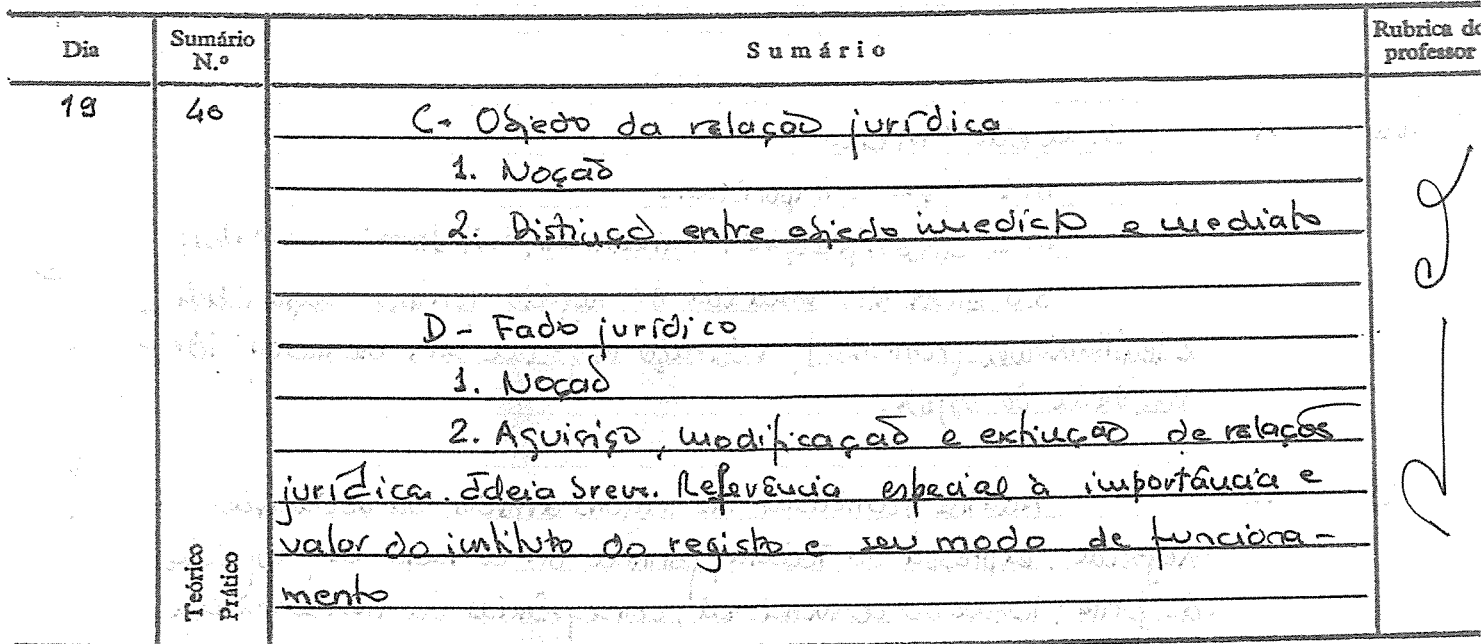 Dia Sumário N.º Sumário Rubrica do professor
19 40 C- Objecto da relação jurídica
1. Noção
2. Distinção entre objecto imediato e mediato
D- Facto jurídico
1. Noção
2. Aquisição, modificação e extinção de relações
jurídicas. Ideia breve. Referência especial à importância e
valor do instituto do registo e seu modo de funciona-
mento
Teórico
Prático